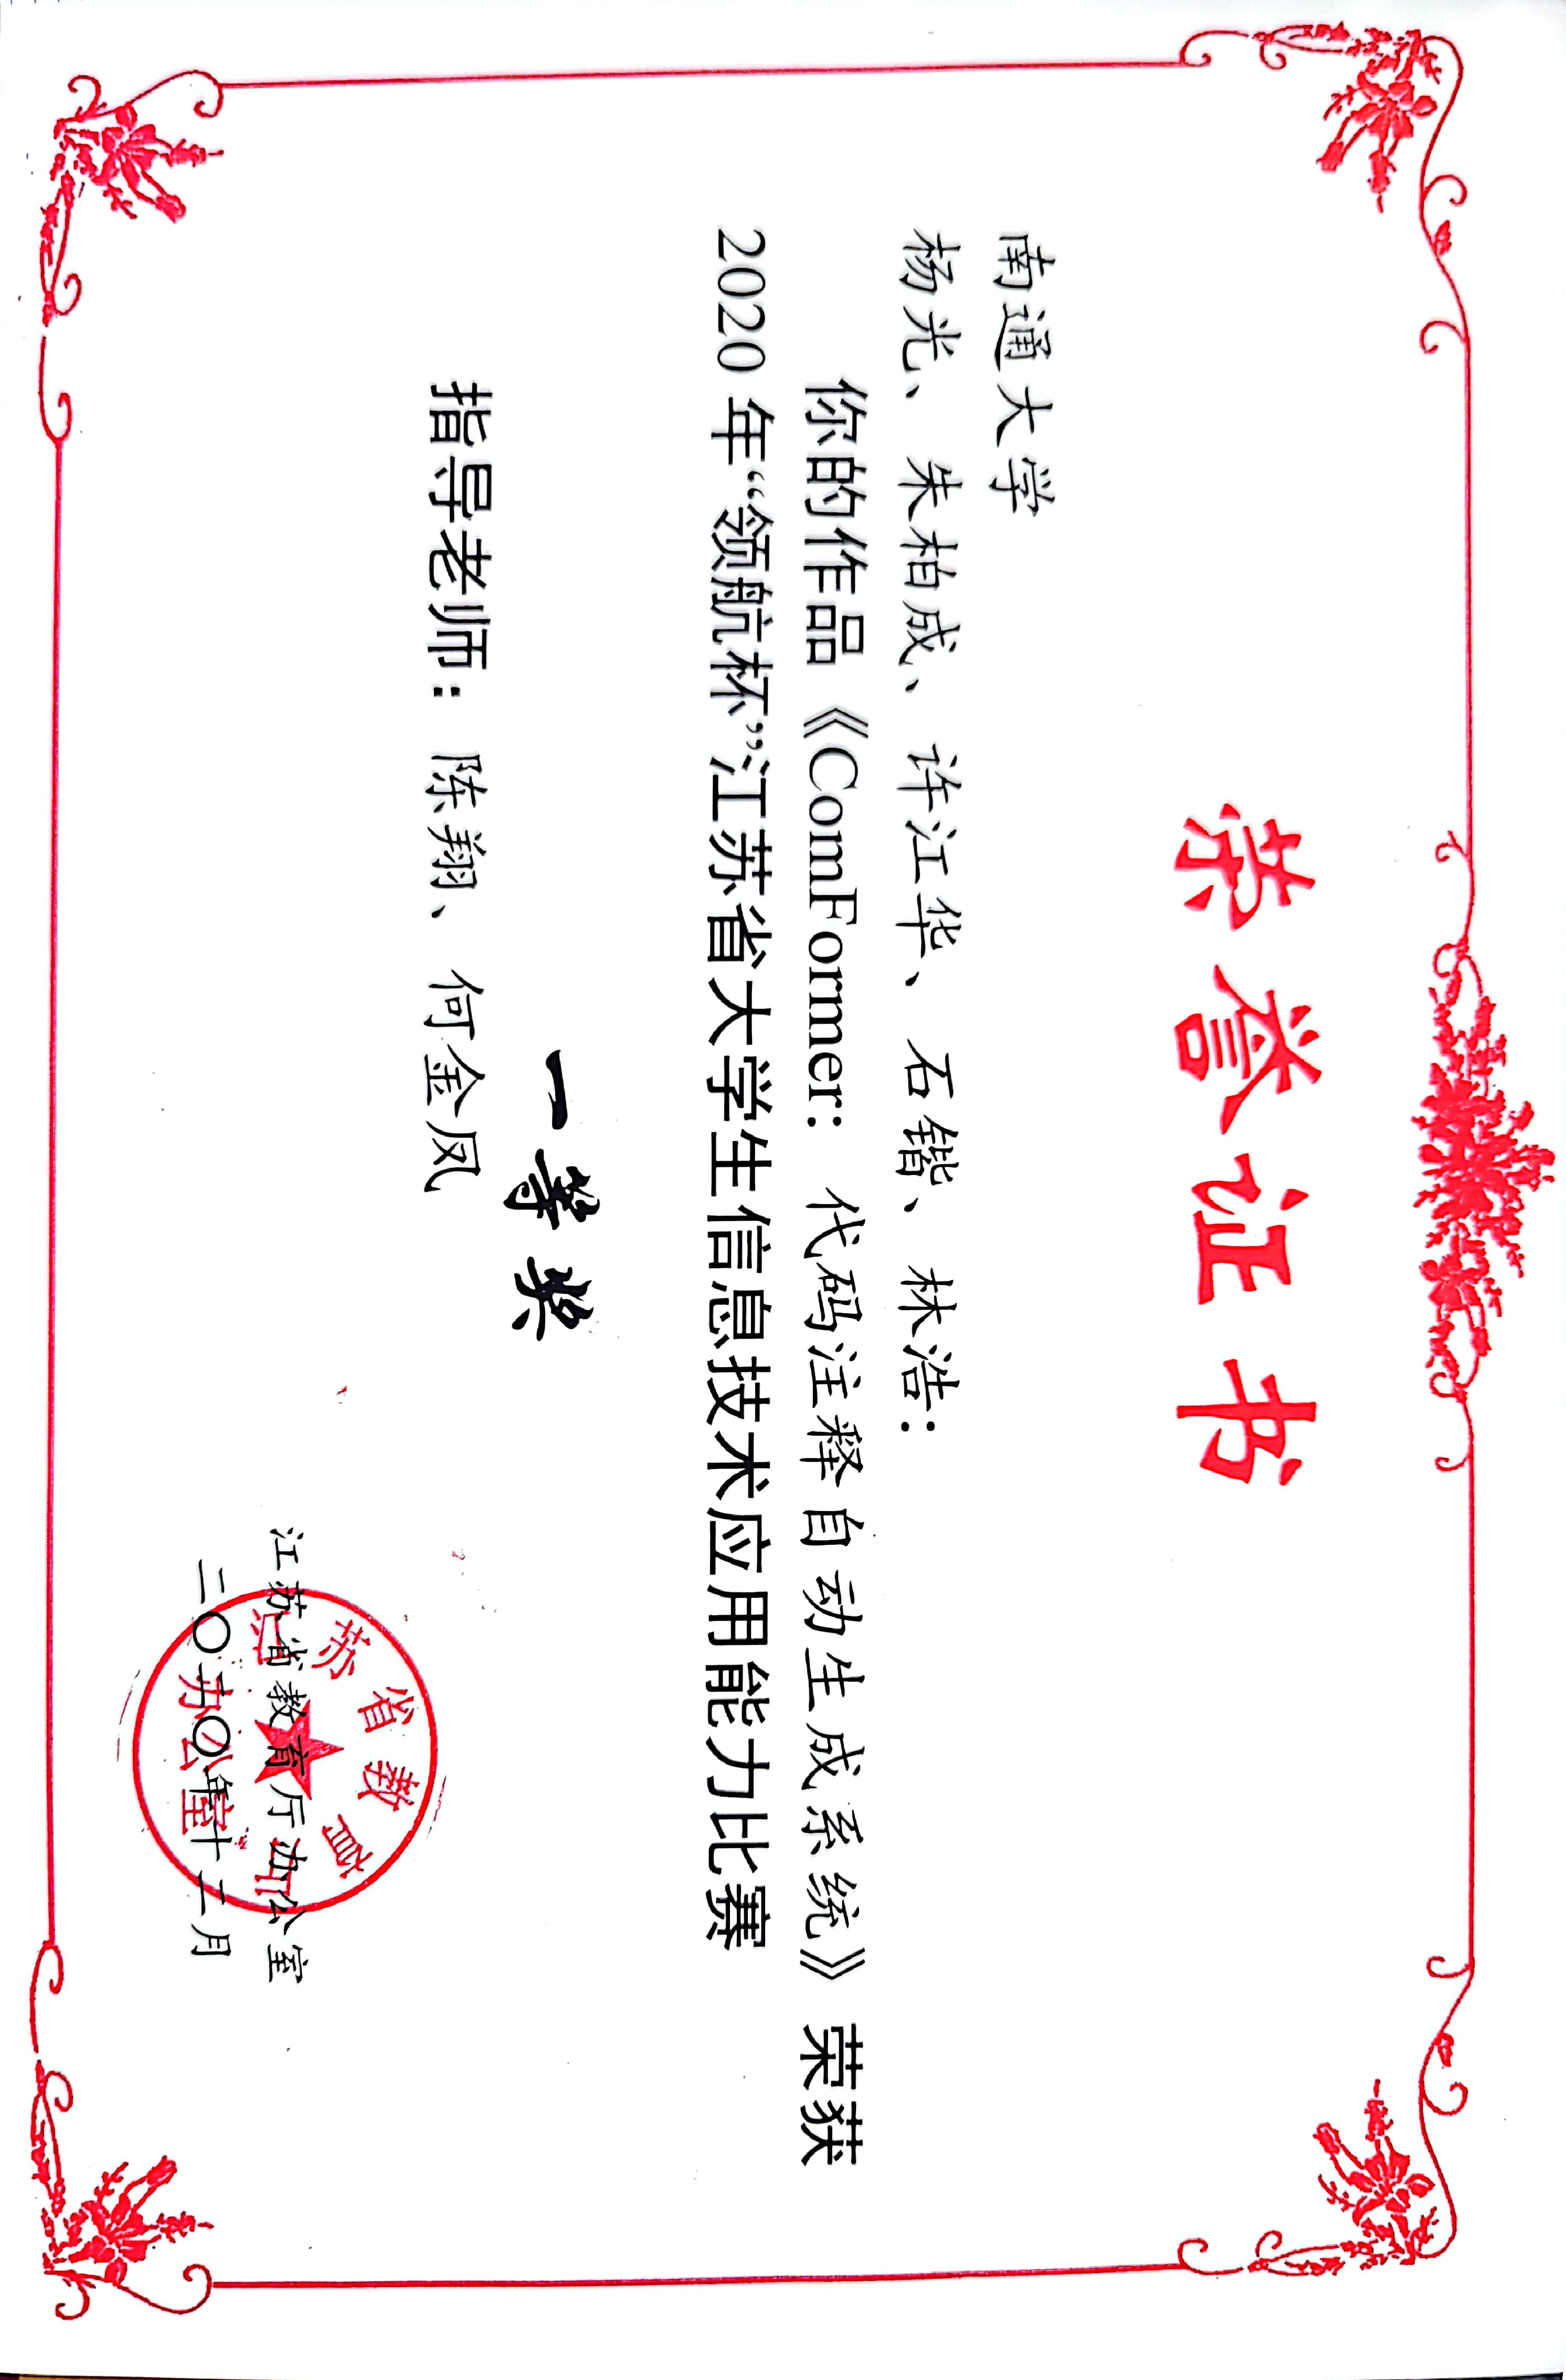 荣誉证书
南通大学
杨光、朱柏成、许江华、石锴、林浩:
你的作品《ComFormer:代码注释自动生成系统》荣获
2020年“领航杯”江苏省大学生信息技术应用能力比赛
一等奖
指导老师:陈翔、何金凤
江苏省教育厅办公室
二〇二〇年十二月
江苏省教育厅
办公室